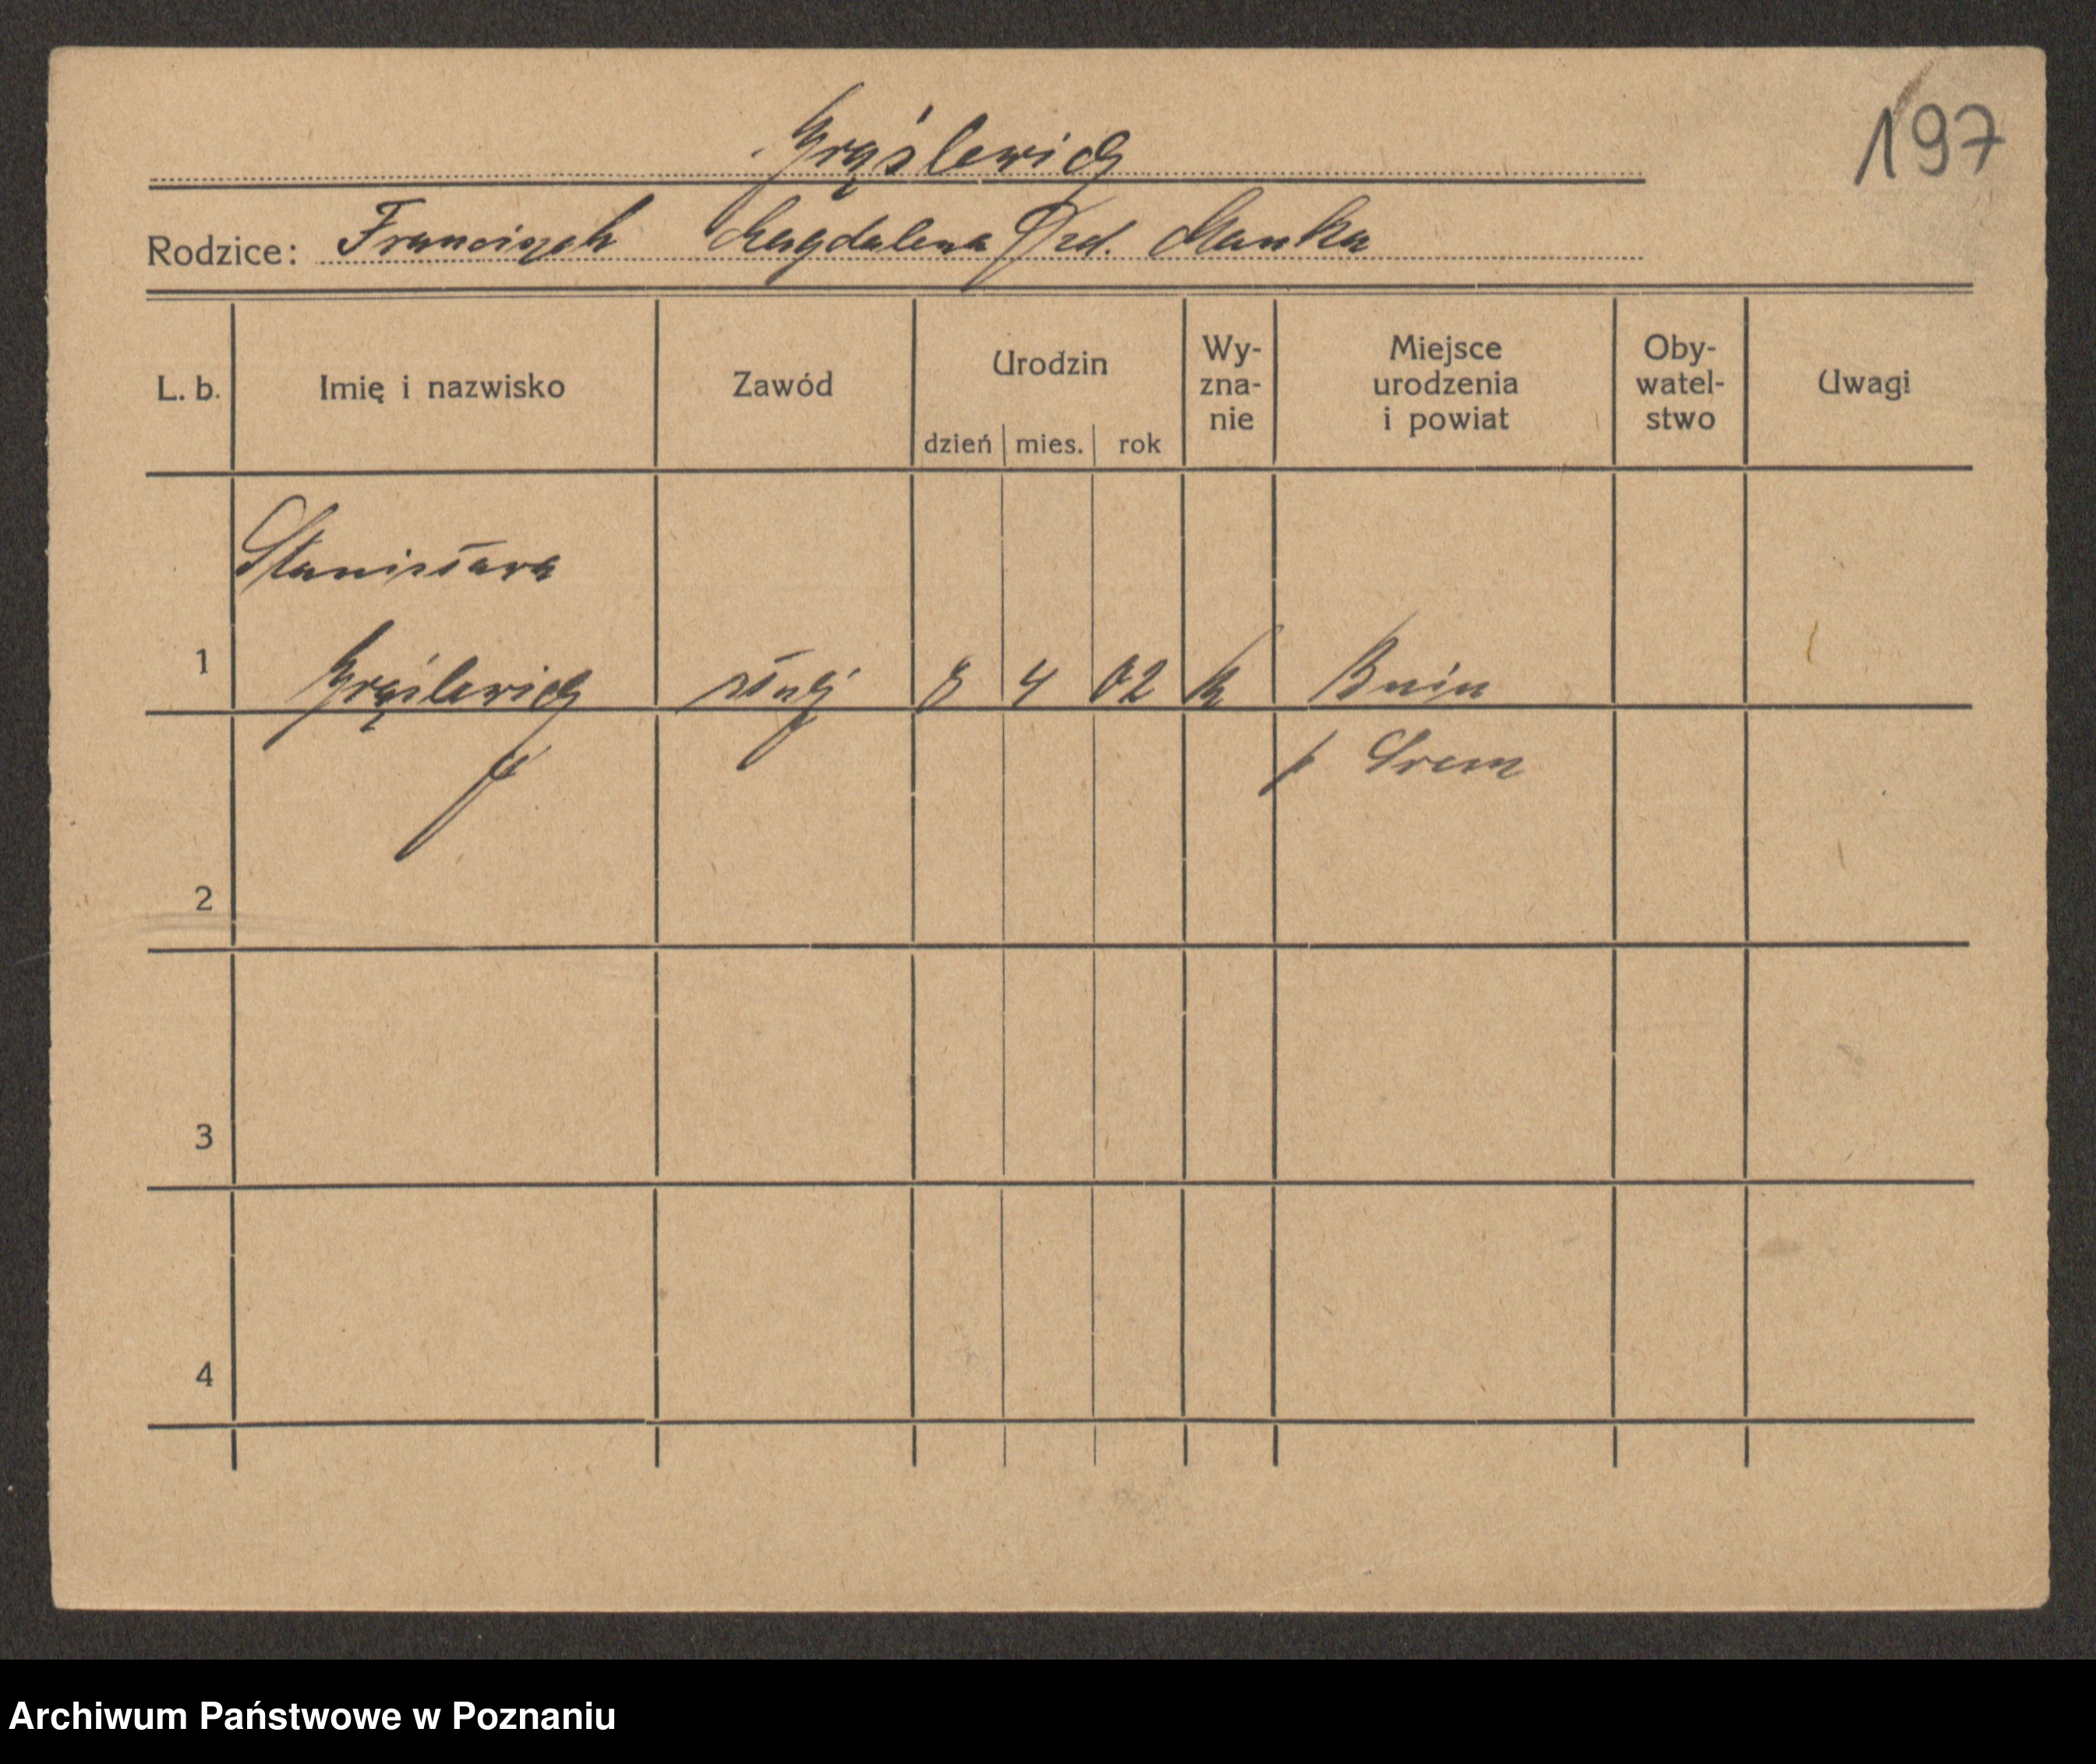 197
Grąślewicz
Rodzice: Franciszek Magdalena Mańka
L. b. Imię i nazwisko Zawód Urodzin dzień mies. rok Wy-zna-nie Miejsce urodzenia i powiat Oby-watel-stwo Uwagi
Stanisława
1 Grąślewicz służ 8 4 02 k Bnin
p Śrem
2
3
4
Archiwum Państwowe w Poznaniu